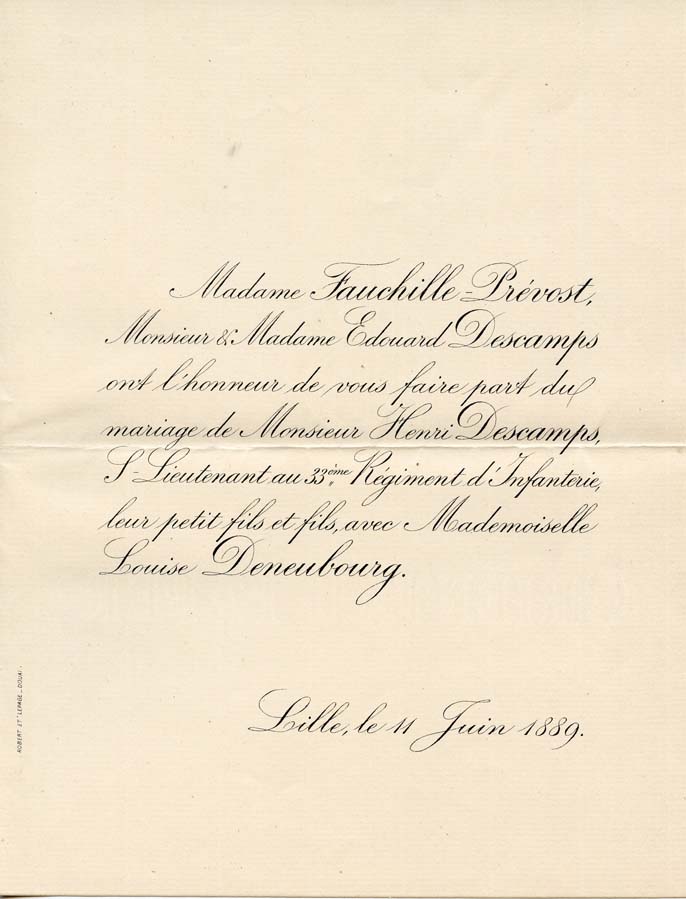 Madame Fauchille-Prévost,
Monsieur & Madame Edouard Descamps
ont l'honneur de vous faire part du
mariage de Monsieur Henri Descamps,
S-Lieutenant au 33ème Régiment d'Infanterie,
leur petit fils et fils, avec Mademoiselle
Louise Deneubourg.
Lille, le 11 Juin 1889.
ROBERT ET LEPAGE _ DOUAI.